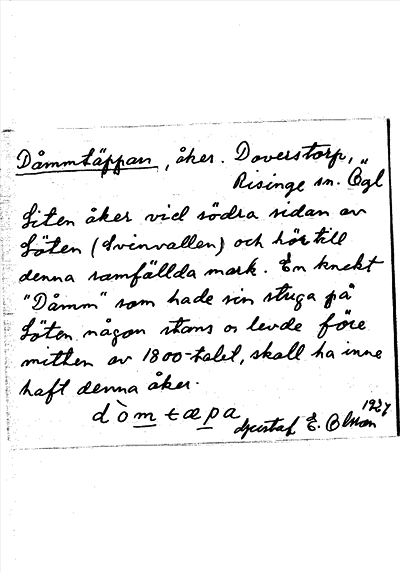 Dåmmtäppan, åker. Doverstorp,
Risinge sn. Ögl
Liten åker vid södra sidan av
Löten (Svinvallen) och hör till
denna samfällda mark. En knekt
"Dåmm" som hade sin stuga på
Löten någon stans o levde före
mitten av 1800-talet, skall ha inne
haft denna åker.
dòmtæpa
Gustaf E. Olsson 1927